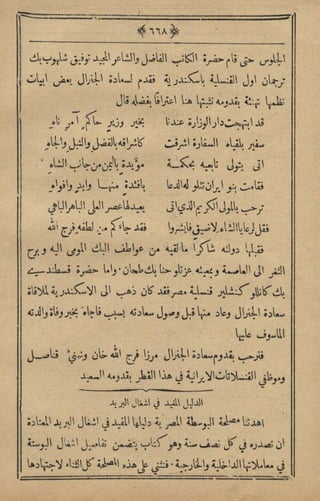 ﴿ ٦٦٨ ﴾
الجلوس حتى قام حضرة الكاتب الفاضل والشاعر المجيد توفيق شلهوب بك
ترجمان اول القنسلية باسكندرية فقدم لسعادة الجنرال بعض ابيات
نظمها تهنئة بقدومه نثبتها هنا اعترافًا بفضله قال
قد ابتهجت دار الوزارة عندنا بخير وزير حاكم آمر ناهِ
سفير بلقياه السفارة اشرقت كاشراقه بالفضل والنبل والجاه
اتى يتولى تابعيه بحكمة مؤيدة باليمن من جانب الشاه
فقامت بنو ايران تتلو له الدعا بافئدة منها وايدٍ وافواه
ترحب بالمولى الكريم الذي اتى بعيد لها عصر العلى الباهر الباهي
فقل لرعايا الشاه لا ضيق فابشروا فقد جاءكم من لطفه فرج الله
فقبلها دولته شاكرًا ما لقيه من عواطف البك المومى اليه وبرح
الثغر الى العاصمة وبمعيته عزتلو حنا بك طحان . واما حضرة قسطندي
بك كاتللو كنشلير قنسلية مصر فقد كان ذهب الى الاسكندرية لملاقاة
سعادة الجنرال وعاد منها قبل وصول سعادته بسبب فاجأه بخبر وفاة والدته
المأسوف عليها
فنرحب بقدوم سعادة الجنرال مرزا فرج الله خان ونهنئ قناصل
وموظفي القنسلاتات الايرانية في هذا القطر بقدومه السعيد
الدليل المفيد في اشغال البريد
اهدتنا مصلحة البوسطة المصرية دليلها المفيد في اشغال البريد المعتادة
ان تصدره في كل نصف سنة وهو كتاب يتضمن تفاصيل اشغال البوستة
في معاملاتها الداخلية والخارجية . فنثني على هذه المصلحة كل الثناء لاجتهادها